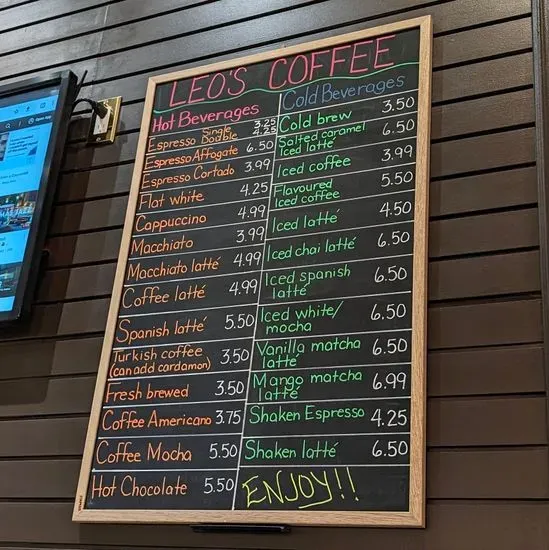 LEO'S COFFEE
Hot Beverages
Espresso Single 3.25
Double 4.25
Espresso Affogate 6.50
Espresso Cortado 3.99
Flat white 4.25
Cappuccino 4.99
Macchiato 3.99
Macchiato latté 4.99
Coffee latté 4.99
Spanish latté 5.50
Turkish coffee
(can add cardamon) 3.50
Fresh brewed 3.50
Coffee Americano 3.75
Coffee Mocha 5.50
Hot Chocolate 5.50
Cold Beverages
Cold brew 3.50
Salted caramel
Iced latté 6.50
Iced coffee 3.99
Flavoured
Iced coffee 5.50
Iced latté 4.50
Iced chai latté 6.50
Iced spanish
latté 6.50
Iced white/
mocha 6.50
Vanilla matcha
latté 6.50
Mango matcha
latté 6.99
Shaken Espresso 4.25
Shaken latté 6.50
ENJOY!!